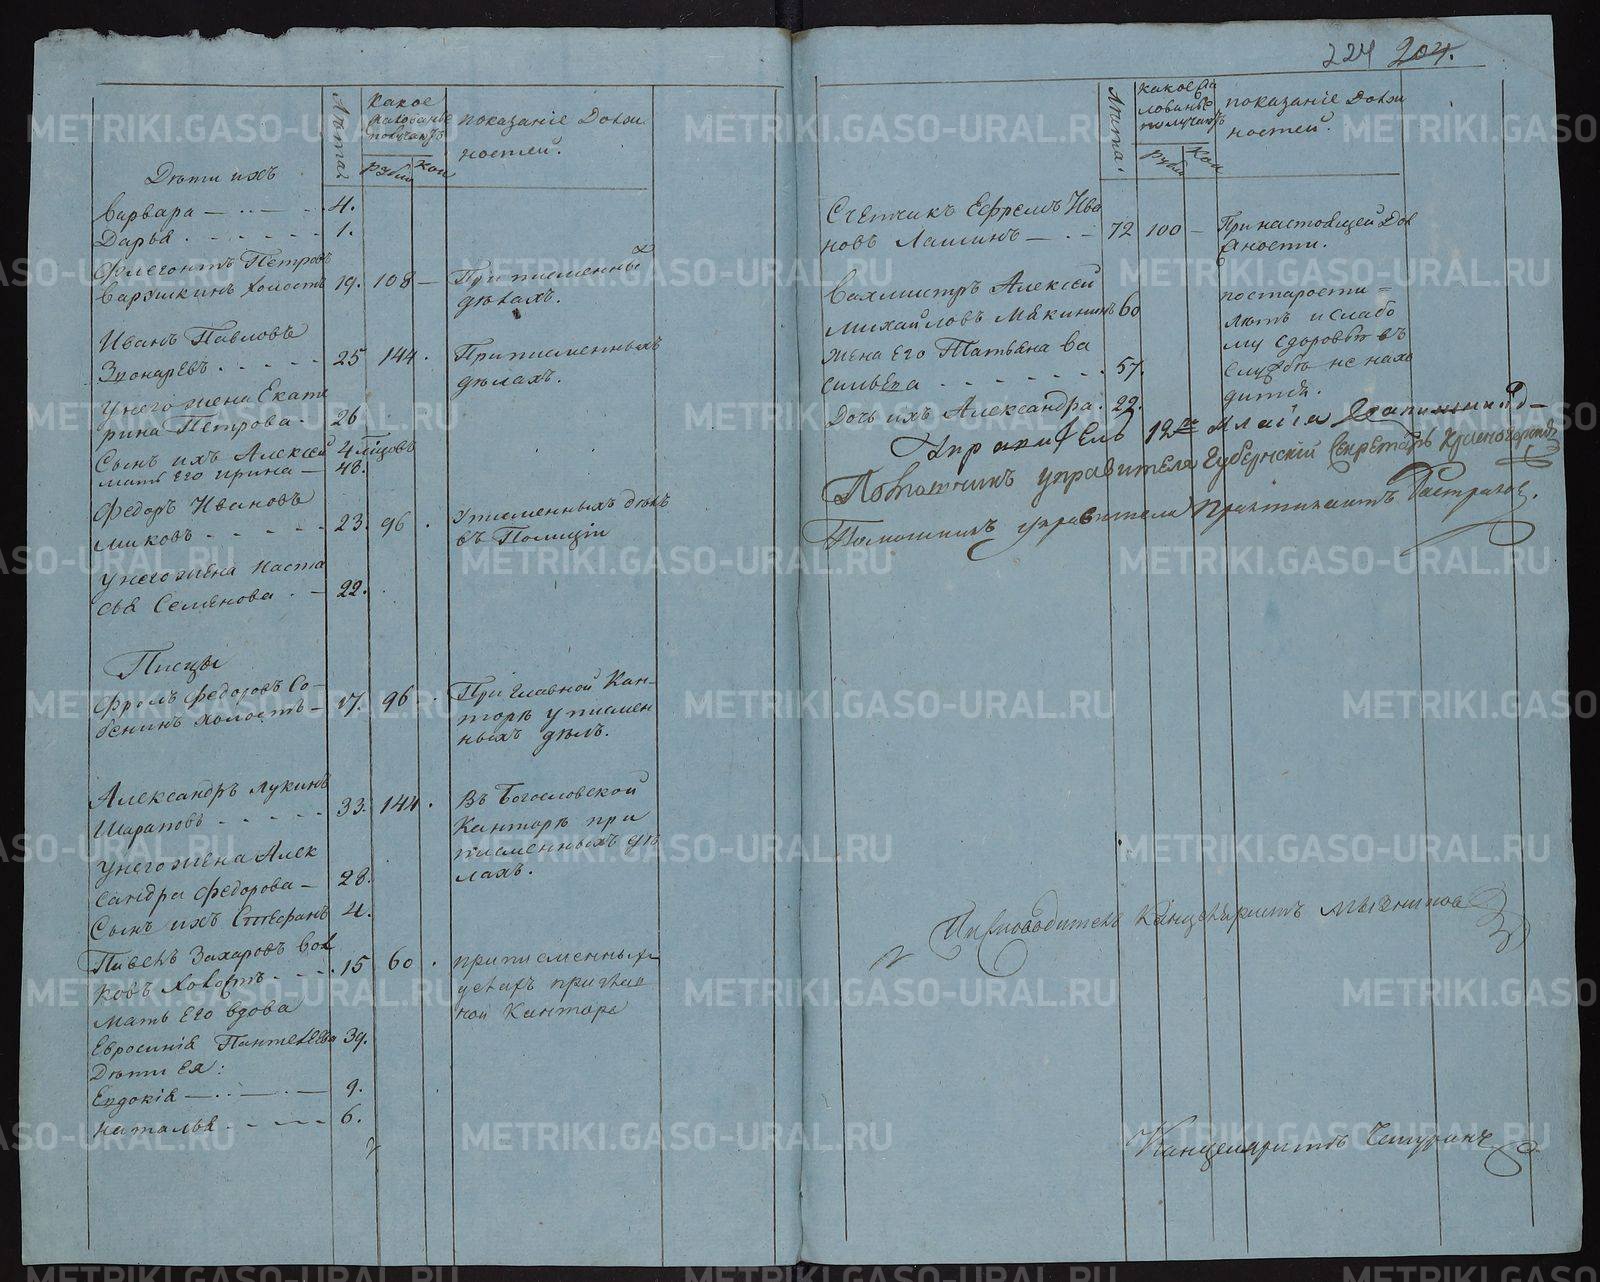 Лѣта.
Какое
жалованье
получаютъ
Рубли Коп
показаніе Долж
ностей.
Дѣти ихъ
Варвара 4.
Дарья 1.
Флегонтъ Петровъ
холостъ 19. 108 — При писменныхъ
дѣлахъ.
Иванъ Павловъ
25 144. При писменныхъ
дѣлахъ.
У него жена Екате
рина Петрова 26
Сынъ ихъ Алексей 4
мать его Ирина — 48.
Федоръ Ивановъ
23. 96. У писменныхъ дѣлъ
въ Полиціи
У него жена Наста
сья Семенова 22.
Писцы
Фролъ Федоровъ Со-
бенинъ холостъ — 17. 96. При главной Кан-
торѣ у писмен
ныхъ дѣлъ.
Александръ Лукинъ
Шараповъ 33. 144. Въ Богословской
Канторѣ при
писменныхъ дѣ
лахъ.
У него жена Алек
сандра Федорова — 28.
Сынъ ихъ 4.
Павелъ Захаровъ Вол
ковъ холостъ 15 60. при писменныхъ
делахъ при глав
ной Канторе
Мать его вдова
Евросинія Пантелѣева 39.
Дѣти ея:
Евдокія 9.
Наталья 6.
224 204.
Лѣта.
какое жа
лованье
получаютъ
Рубли Коп
показаніе Долж
ностей.
Счетчикъ Ефремъ Ива
новъ Лапинъ 72 100 — При настоящей дол
жности.
Вахмистръ Алексей
Михайловъ Макининъ 60 по старости
лѣтъ и слабо
му здоровью въ
службѣ не нахо
дится.
Жена его Татьяна Ва
сильева 57.
Дочь ихъ Александра. 22.
Управитель 12го класса
Помощникъ управителя Губернскій Секретарь
Помощникъ управителя Практикантъ
Писмоводитель Канцеляристъ Мысниковъ
Канцеляристъ Чепуринъ
METRIKI.GASO-URAL.RU